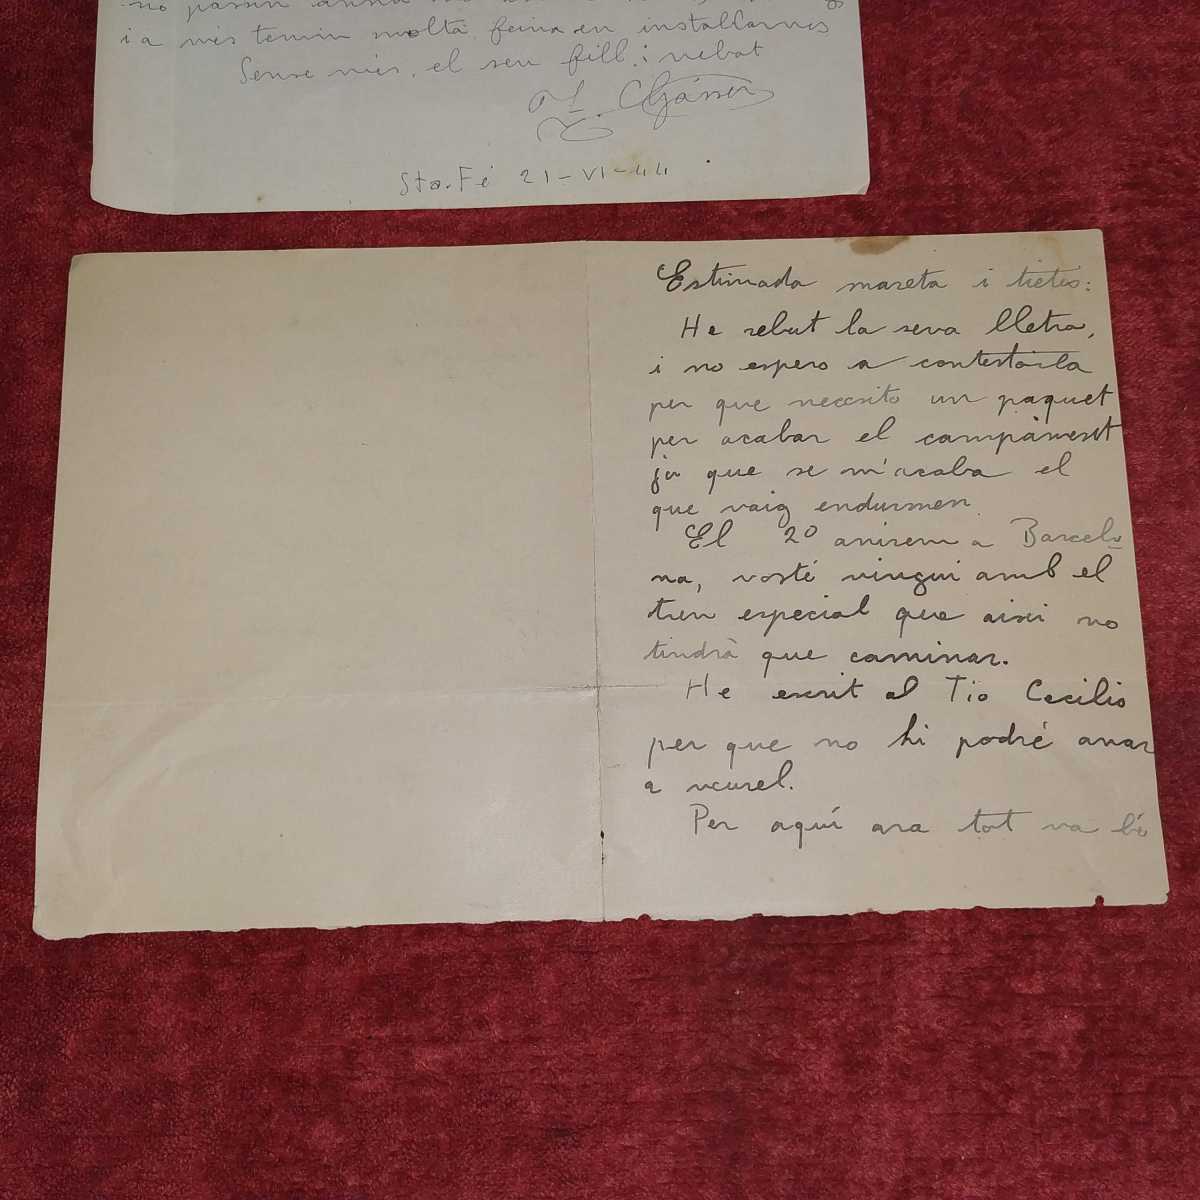 no passin
i a mes tenim molta feina en installarnos
Sense mes, el seu fill i nebot
Sta. Fé 21-VI-44
Estimada mareta i tietes:
He rebut la seva lletra,
i no espero a contestarla
per que necesito un paquet
per acabar el campament
ja que se m'acaba el
que vaig endurmen
El 20 anirem a Barcelo
na, vosté vingui amb el
tren especial que aixi no
tindrà que caminar.
He escrit al Tio Cecilio
per que no hi podré anar
a veurel.
Per aquí ara tot va bé